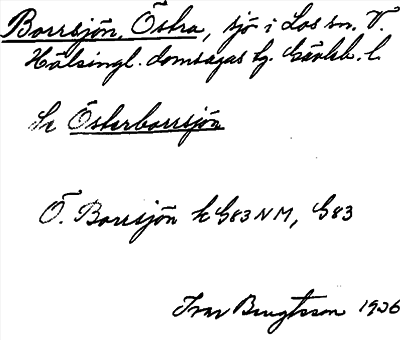 Borrsjön, Östra, sjö i Los sn. V.
Hälsingl. domsagas tg. Gävleb. l.
Se Österborrsjön
Ö. Borrsjön k G83 NM, G83
Ivar Bengtsson 1936